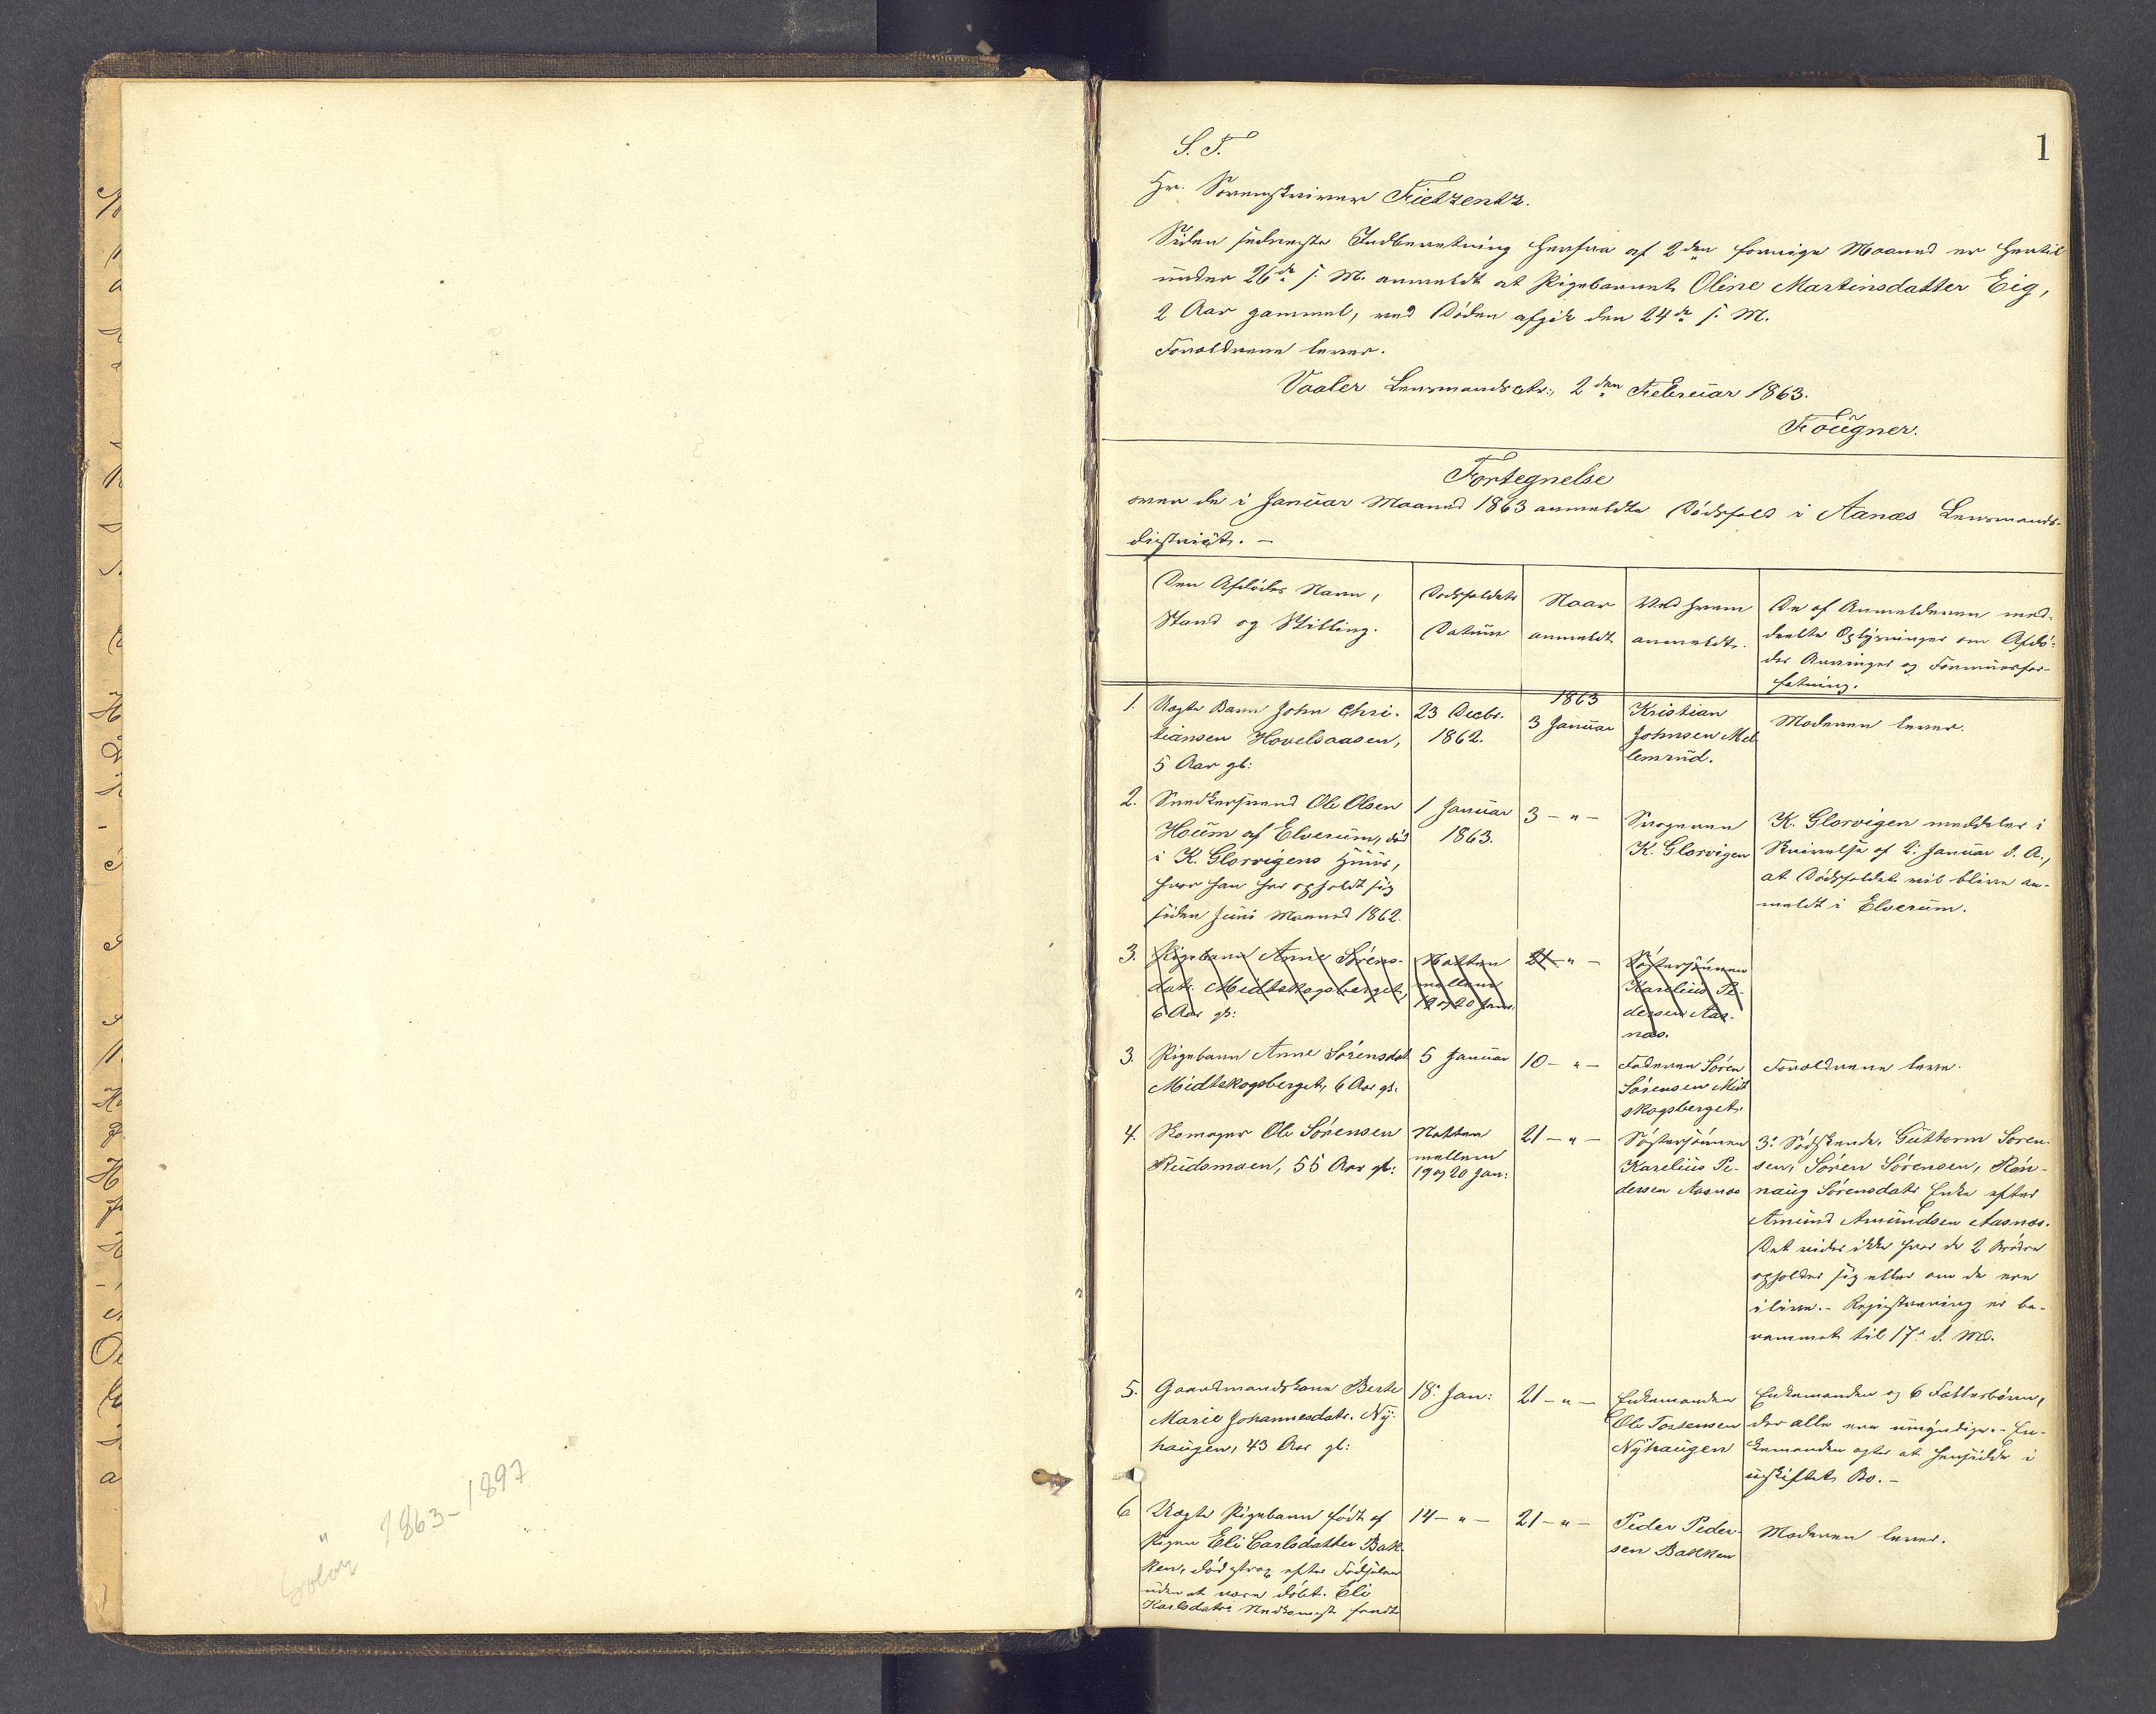 " 1863-1897
Solør
1
S. T.
Hr. Sorenskriver Fietzentz.
Siden sidneste Indberetning herfra af 2den forrige Maaned er hertil
under 26de s. M. anmeldt at Pigebarnet Oline Martinsdatter Eig,
2 Aar gammel, ved Døden afgik den 24de s. M.
Forældrene lever.
Vaaler Lensmandsctr:, 2den Februar 1863.
Fougner.
Fortegnelse
over de i Januar Maaned 1863 anmeldte Dødsfald i Aanæs Lensmands-
district. -
Den Afdødes Navn,
Stand og Stilling.
Dødsfaldets
Datum
Naar
anmeldt
Ved hvem
anmeldt.
De af Anmelderen med-
deelte Oplysninger om Afdø-
des Arvinger og Formuesfor-
fatning.
1. Uægte Barn John Chri-
tiansen Hovelsaasen,
5 Aar gl:
23 Decbr.
1862.
1863
3 Januar
Kristian
Johnsen Mel
lemrud.
Moderen lever.
2. Snedkersvend Ole Olsen
Houm af Elverum, død
i K. Glorvigens Huus,
hvor han har opholdt sig
siden Juni Maaned 1862.
1 Januar
1863.
3 - " -
Svogeren
K. Glorvigen
K. Glorvigen meddeler i
Skrivelse af 2. Januar d. A.,
at Dødsfaldet vil blive an-
meldt i Elverum.
3. Pigebarn Anne Sørens-
datr. Midtskogsberget,
6 Aar gl:
Natten
mellem
19 og 20 Jan:
21 " -
Søstersønnen
Karelius Pe-
dersen Aas-
næs.
3. Pigebarn Anne Sørensdat.
Midtskogsberget, 6 Aar gl.
5 Januar
10 - " -
Faderen Søren
Sørensen Midt
skogsberget.
Forældrene leve.
4. Komager Ole Sørensen
Rudsmoen, 55 Aar gl:
Natten
mellem
19 og 20 Jan:
21 - " -
Søstersønnen
Karelius Pe-
dersen Aasnæs
3: Sødskende, Guttorm Soren-
sen, Søren Sørensen, Røn-
naug Sørensdatr Enke efter
Amund Amundsen Aasnæs.
Det vides ikke hvor de 2 Brødre
opholder sig eller om de ere
ilive. - Registrering er be-
rammet til 17: d. Md.
5. Gaardmandskone Berte
Marie Johannesdatr. Ny-
haugen, 43 Aar gl:
18: Jan:
21 - " -
Enkemanden
Ole Tostensen
Nyhaugen
Enkemanden og 6 Fællesbørn,
der alle ere umyndige. - En-
kemanden agter at hensidde i
uskiftet Bo. -
6 Uægte Pigebarn født af
Pigen Eli Carlsdatter Bak-
ken, død strax efter Fødselen
uden at være døbt. Eli
Karlsdatrs Nedkomst fandt
14 - " -
21 - " -
Peder Peder-
sen Bakken
Moderen lever.